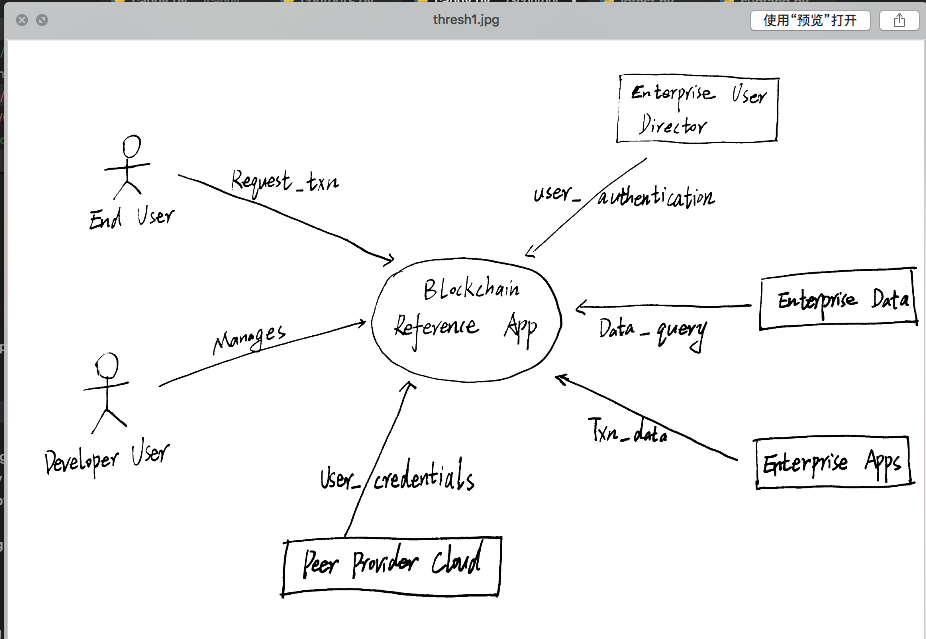 thresh1.jpg
使用“预览”打开
Enterprise User
Director
Request_txn
user_ authentication
End User
Blockchain
Reference App
Enterprise Data
Data_query
Manages
Txn_data
Developer User
Enterprise Apps
User_ credentials
Peer Provider Cloud